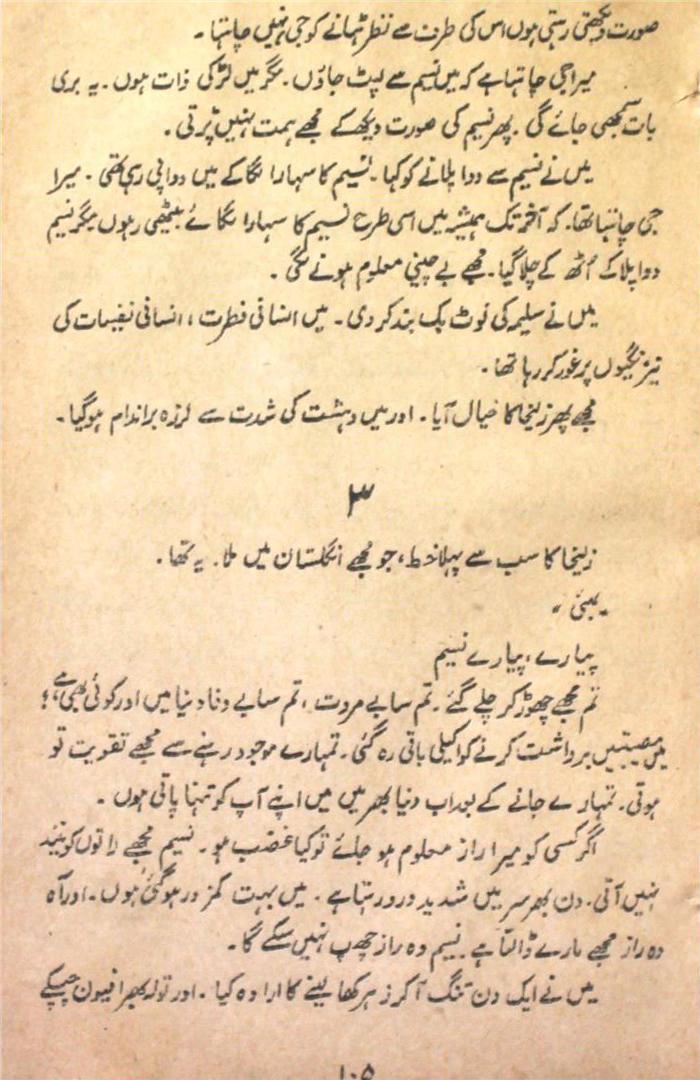 صورت دیکھتی رہتی ہوں اس کی طرف سے نظر ہٹانے کو جی نہیں چاہتا ۔
میرا جی چاہتا ہے کہ میں نسیم سے لپٹ جاؤں۔ مگر میں لڑکی ذات ہوں۔ یہ بری
بات سمجھی جائے گی ۔ پھر نسیم کی صورت دیکھ کے مجھے ہمت نہیں پڑتی ۔
میں نے نسیم سے دوا پلانے کو کہا۔ نسیم کا سہارا لگا کے میں دوا پی رہی تھی ۔ میرا
جی چاہتا تھا۔ کہ آخر تک ہمیشہ میں اسی طرح نسیم کا سہارا لگائے بیٹھی رہوں مگر نسیم
دوا پلا کے اُٹھ کے چلا گیا۔ مجھے بے چینی معلوم ہونے لگی ۔
میں نے سلیمہ کی نوٹ بک بند کر دی ۔ میں انسانی فطرت ، انسانی نفسیات کی
نیرنگیوں پر غور کر رہا تھا ۔
مجھے پھر زلیخا کا خیال آیا ۔ اور میں دہشت کی شدت سے لرزہ براندام ہو گیا ۔
۳
زلیخا کا سب سے پہلا خط ، جو مجھے انگلستان میں ملا۔ یہ تھا ۔
بمبئی ،،
پیارے ، پیارے نسیم
تم مجھے چھوڑ کر چلے گئے ۔ تم سا بے مروت ، تم سا بے وفا دنیا میں اور کوئی بھی ہے ؛
میں مصیبتیں برداشت کرنے کو اکیلی باقی رہ گئی ۔ تمہارے موجود رہنے سے مجھے تقویت تو
ہوتی ۔ تمہارے جانے کے بعد اب دنیا بھر میں میں اپنے آپ کو تنہا پاتی ہوں ۔
اگر کسی کو میرا راز معلوم ہو جائے تو کیا غضب ہو ۔ نسیم مجھے راتوں کو نیند
نہیں آتی ۔ دن بھر سر میں شدید درد رہتا ہے ۔ میں بہت کمزور ہو گئی ہوں ۔ اور آہ
وہ راز مجھے مارے ڈالتا ہے ۔ نسیم وہ راز چھپ نہیں سکے گا ۔
میں نے ایک دن تنگ آ کر زہر کھا لینے کا ارادہ کیا ۔ اور تولہ بھر افیون چپکے
۱۰۵